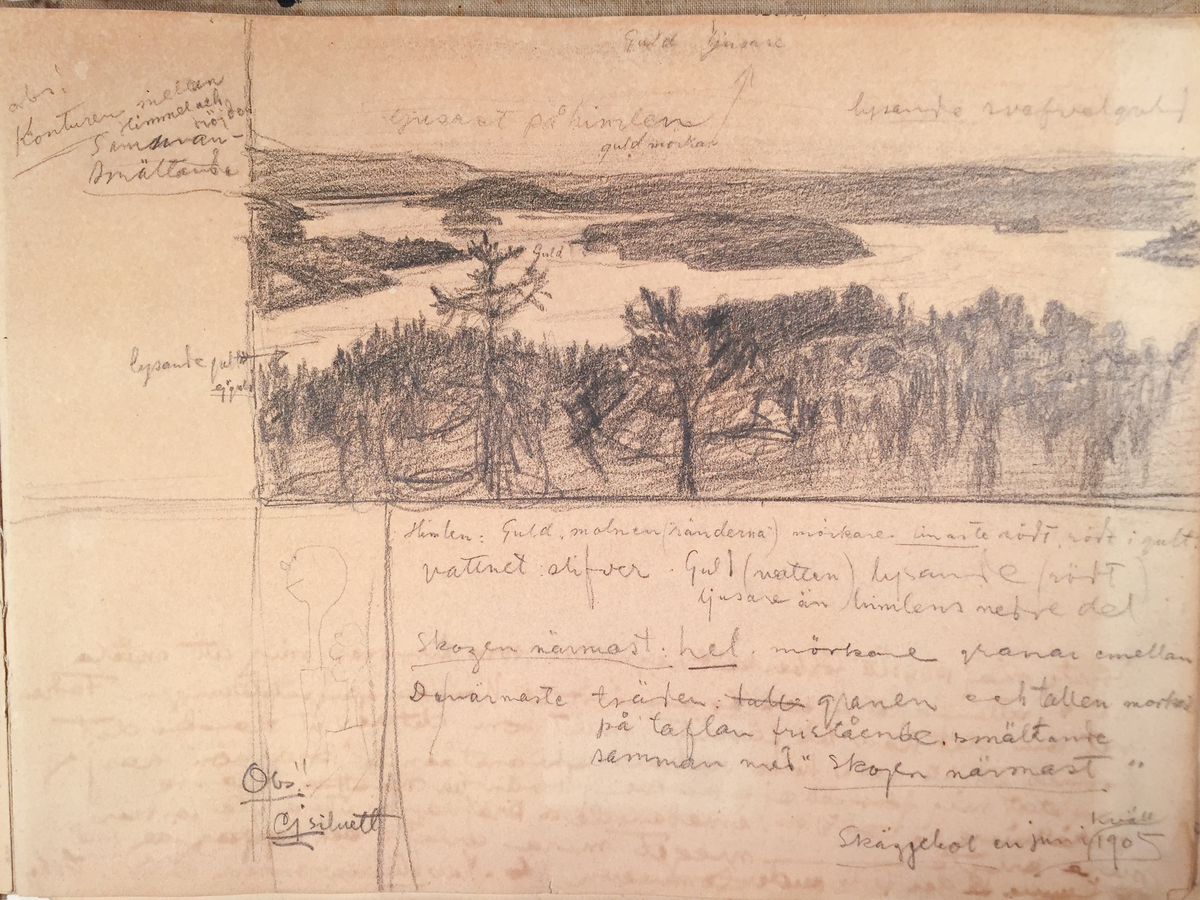 Guld ljusare
obs!
Konturen mellan
Himmel och
höjden
Samman-
smältande
ljusast på himlen
guld mörkare
lysande svafvelguld
Guld
lysande gult
Himlen: Guld. molnen (ränderna) mörkare. rödt, rödt i gult
vattnet: silfver. Guld (vatten) lysande (rödt)
ljusare än himlens nedre del
Skogen närmast: hel. mörkare granar emellan
De närmaste träden: granen och tallen mörka
på taflan fristående. smältande
samman med "Skogen närmast"
Obs!!
Ej siluett
Skäggebol en juni Kväll
1905